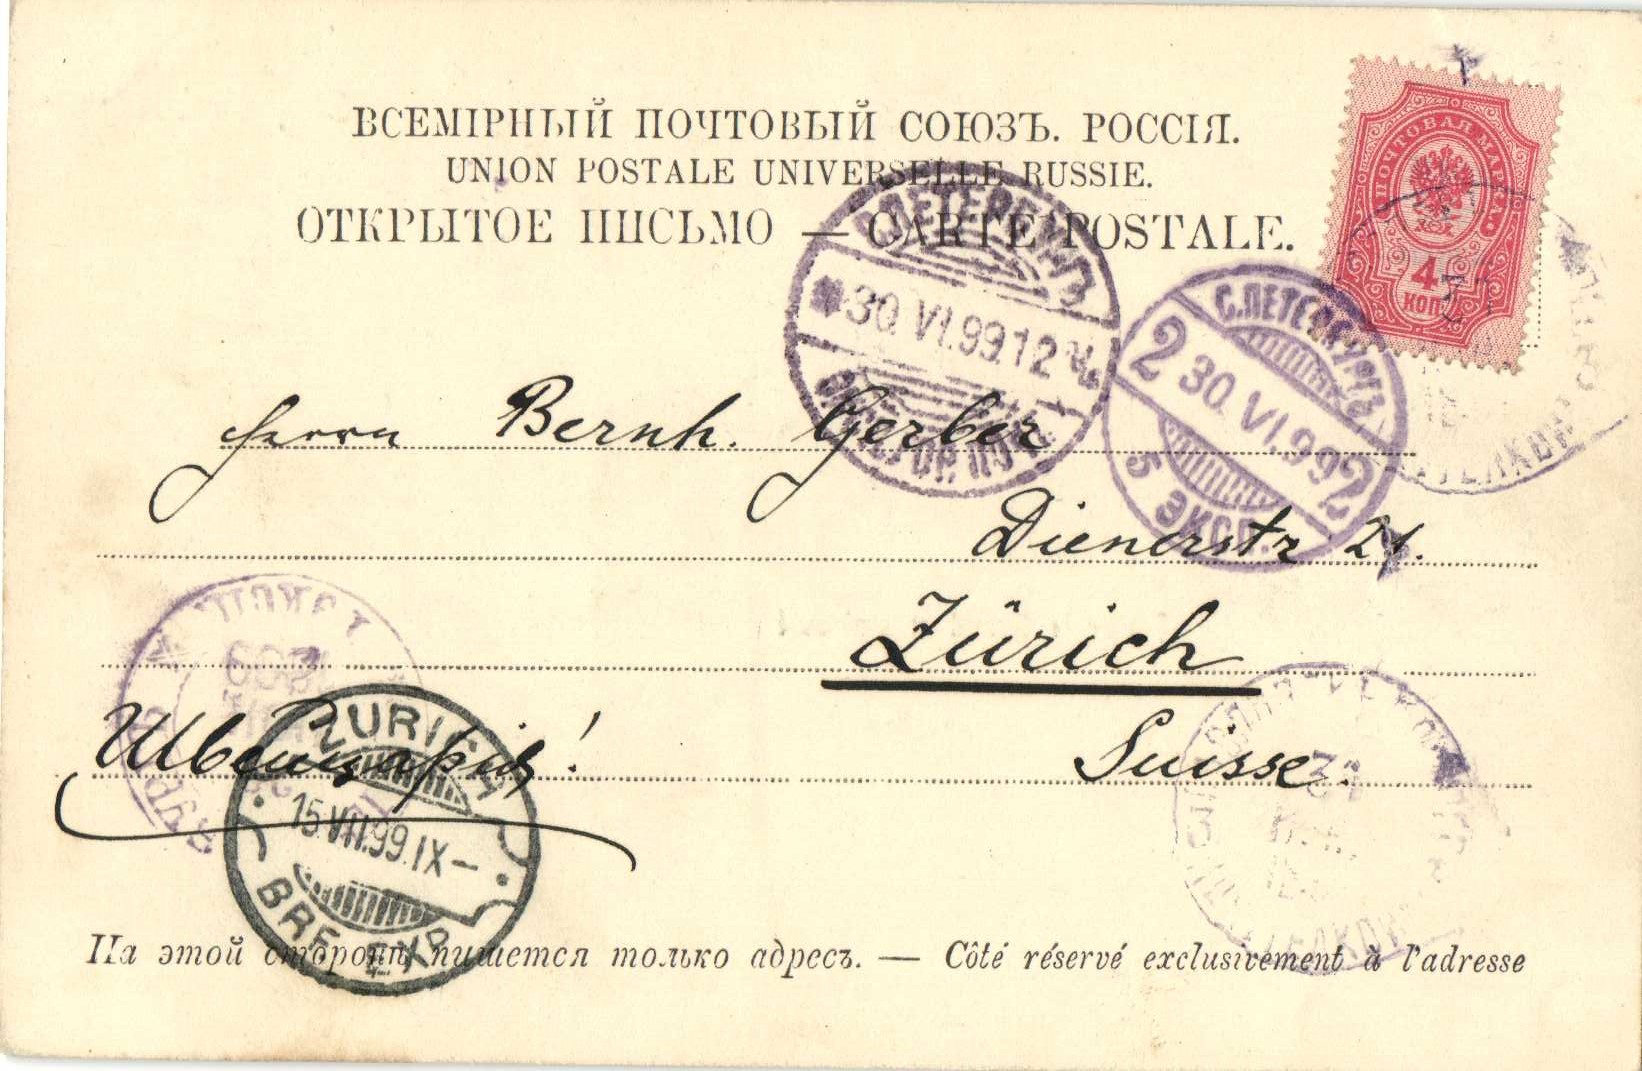 ВСЕМІРНЫЙ ПОЧТОВЫЙ СОЮЗЪ. РОССІЯ.
UNION POSTALE UNIVERSELLE RUSSIE.
ОТКРЫТОЕ ПИСЬМО — CARTE POSTALE.
ПОЧТОВАЯ МАРКА
4
КОП.
С.ПЕТЕРБУРГЪ
30.VI.99.12
С.ПЕТЕРБУРГЪ
2 30.VI.99 2
5 ЭКСП.
Herrn Bernh. Gerber
Dienerstr 21.
Zürich
Suisse.
Швейцарія!
ZÜRICH
15.VII.99.IX—
BRF. EXP.
На этой сторонѣ пишется только адресъ. — Côté réservé exclusivement à l'adresse